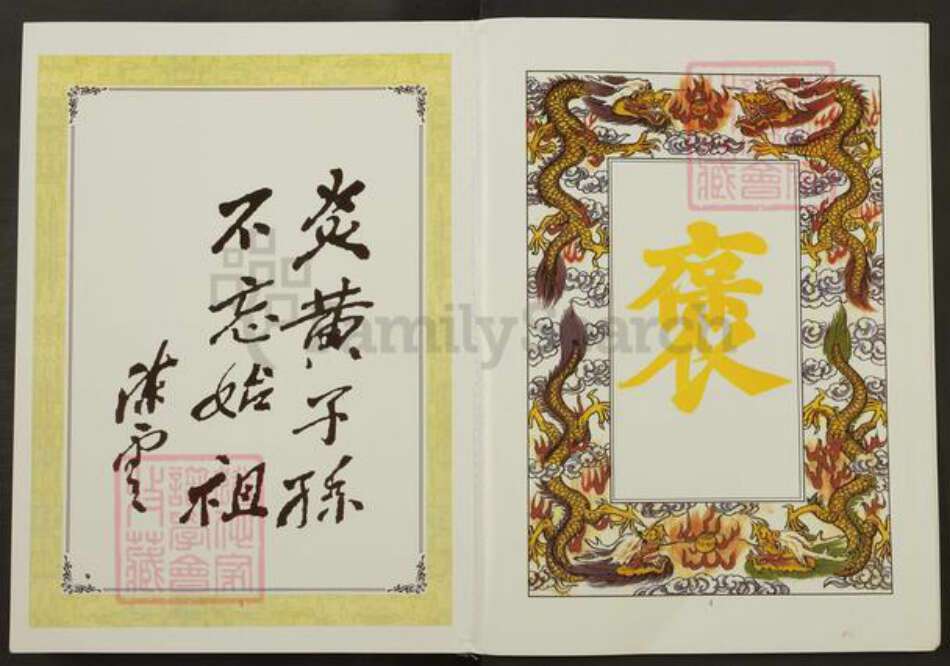 炎黄子孙
不忘始祖
陈云
褒
FamilySearch